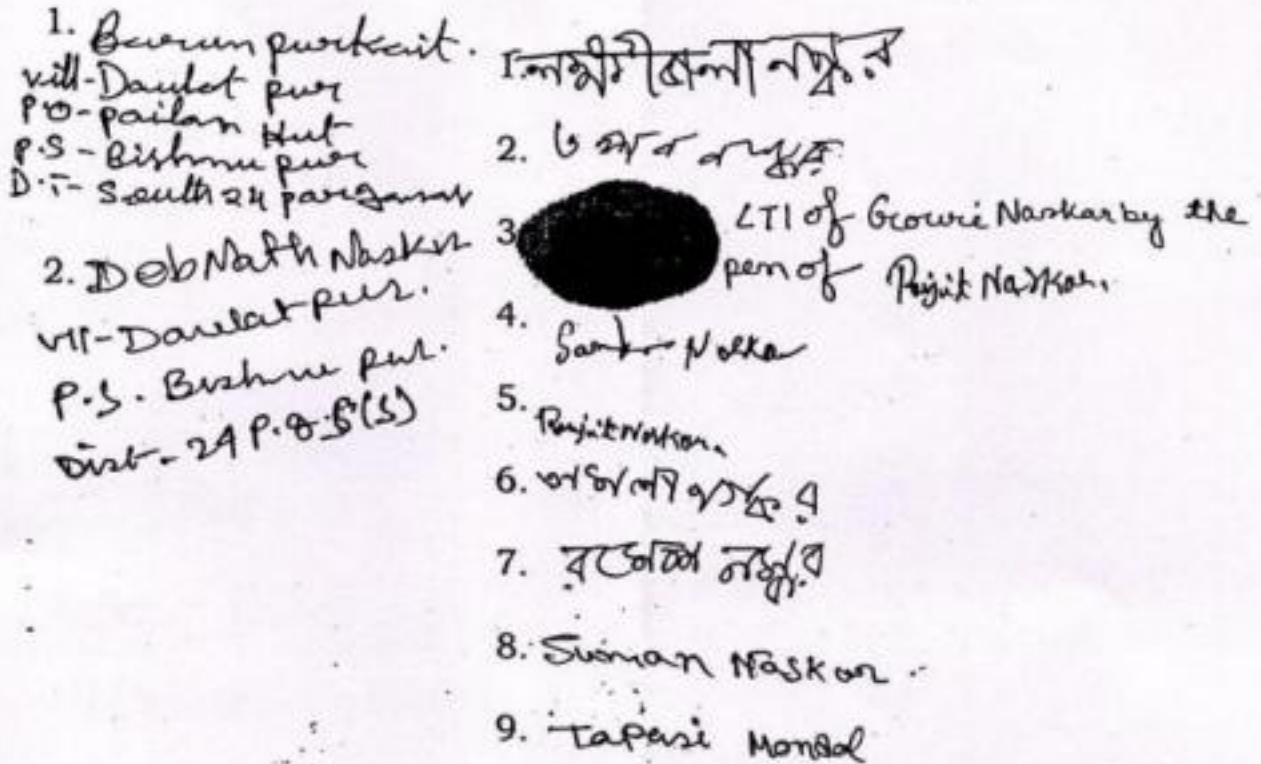 1. Barun purkait.
vill-Daulat pur
P.O-pailan Hut
P.S - Bishnu pur
D.T- South 24 parganas
2. DebNath Naskar
vill-Daulat pur.
P.S. Bishnu pur.
Dist-24 P.G.S(S)
1. লক্ষীবালা নস্কর
2. তপন নস্কর
3. LTI of Gouri Naskar by the
pen of Rujit Naskar.
4.
5. Rujit Naskar.
6. নস্কর
7. রমেশ নস্কর
8. Suman Naskar
9. Tapasi Mondal